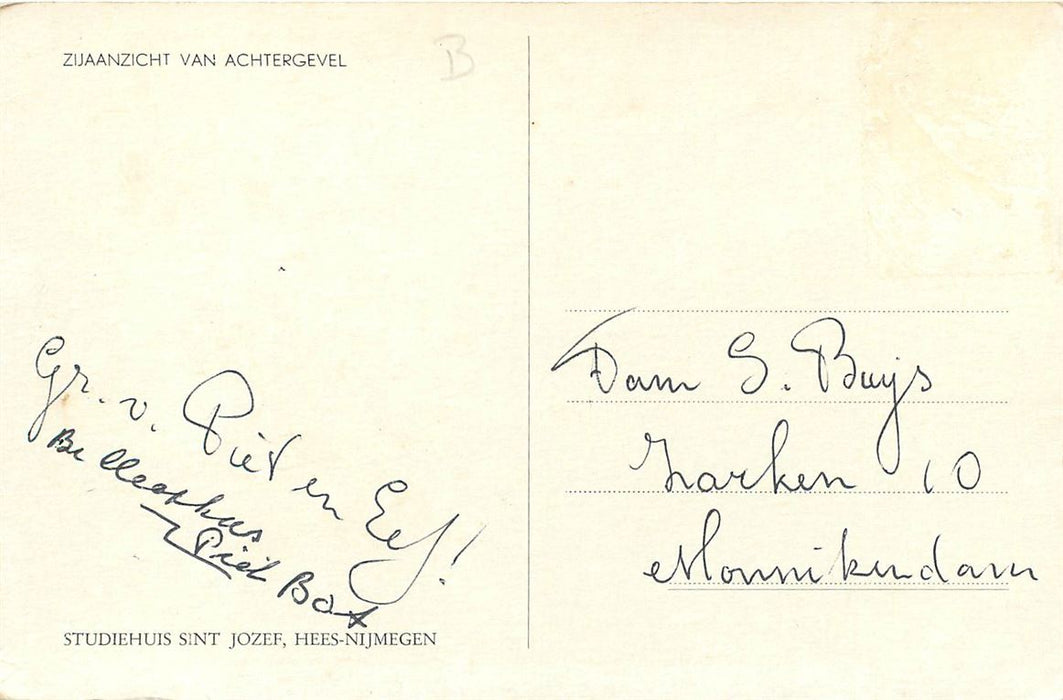 ZIJAANZICHT VAN ACHTERGEVEL
B
Gr. v. Piet en Eef!
Br Cleophas
Piet Bax
STUDIEHUIS SINT JOZEF, HEES-NIJMEGEN
Fam S. Buijs
Zarken 10
Monnikendam